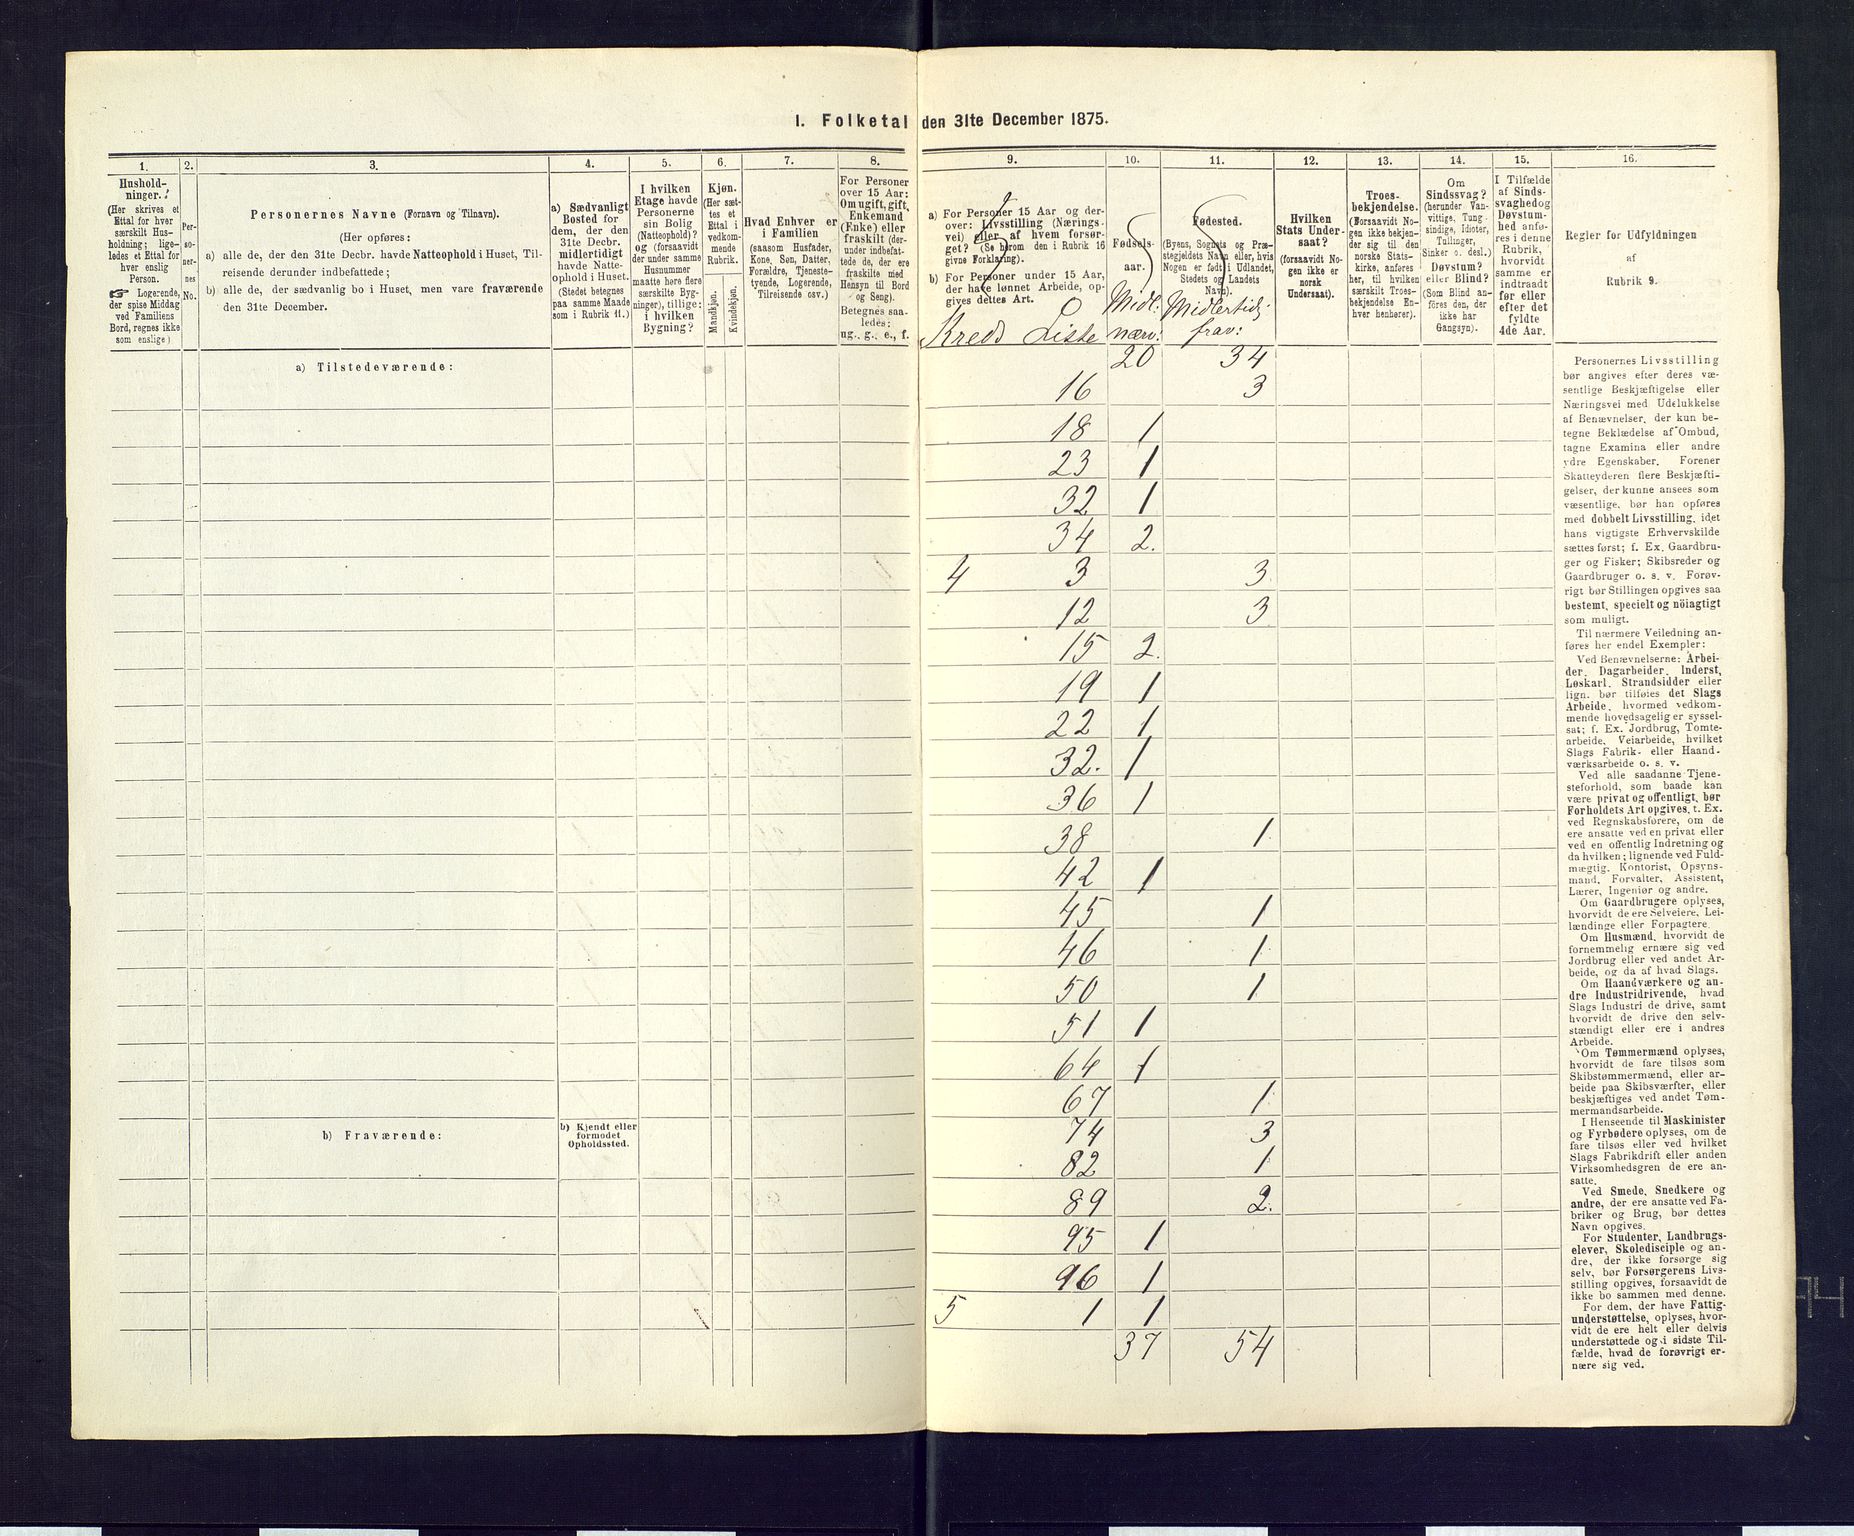 I. Folketal den 31te December 1875.
1. 2. 3. 4. 5. 6. 7. 8. 9. 10. 11. 12. 13. 14. 15. 16.
Husholdninger.
(Her skrives et
Ettal for hver
særskilt Husholdning; ligeledes
et Ettal for
hver enslig
Person.
☞ Logerende,
der spise Middag
ved Familiens
Bord, regnes ikke
som enslige)
Personernes No.
Personernes Navne (Fornavn og Tilnavn).
(Her opføres:
a) alle de, der den 31te Decbr. havde Natteophold i Huset, Tilreisende
derunder indbefattede;
b) alle de, der sædvanlig bo i Huset, men vare fraværende
den 31te December.
a) Sædvanligt
Bosted for
dem, der den
31te Decbr.
midlertidigt
havde Natteophold
i Huset.
(Stedet betegnes
paa samme Maade
som i Rubrik 11.)
I hvilken
Etage havde
Personerne
sin Bolig
(Natteophold)?
og (forsaavidt
der under samme
Husnummer
maatte høre flere
særskilte Bygninger),
tillige:
i hvilken
Bygning?
Kjøn.
(Her sættes
et
Ettal i
vedkommende
Rubrik.
Mandkjøn.
Kvindekjøn.
Hvad Enhver er
i Familien
(saasom Husfader,
Kone, Søn, Datter,
Forældre, Tjenestetyende,
Logerende,
Tilreisende osv.)
For Personer
over 15 Aar:
Om ugift, gift,
Enkemand
(Enke) eller
fraskilt (derunder
indbefattede
de, der ere
fraskilte med
Hensyn til Bord
og Seng).
Betegnes saaledes:
ug., g., e., f.
a) For Personer 15 Aar og derover:
Livsstilling (Næringsvei)
eller af hvem forsørget?
(Se herom den i Rubrik 16
givne Forklaring).
b) For Personer under 15 Aar,
der have lønnet Arbeide, opgives
dettes Art.
Fødselsaar.
Fødested.
(Byens, Sognets og Præstegjeldets
Navn eller, hvis
Nogen er født i Udlandet,
Stedets og Landets
Navn).
Hvilken
Stats Undersaat?
(forsaavidt Nogen
ikke er
norsk
Undersaat).
Troesbekjendelse.
(Forsaavidt Nogen
ikke bekjender
sig til den
norske Statskirke,
anføres
her, til hvilken
særskilt Troesbekjendelse
Enhver
henhører).
Om
Sindssvag?
(herunder Vanvittige,
Tungsindige,
Idioter,
Tullinger,
Sinker o. desl.)
Døvstum?
eller Blind?
(Som Blind anføres
den, der
ikke har
Gangsyn).
I Tilfælde
af Sindssvaghed
og
Døvstumhed
anføres
i denne
Rubrik,
hvorvidt
samme er
indtraadt
før eller
efter det
fyldte
4de Aar.
Regler for Udfyldningen
af
Rubrik 9.
Kreds Liste Midl: nærv: Midlertid: frav:
a) Tilstedeværende:
20 34
16 3
18 1
23 1
32 1
34 2.
4 3 3
12 3
15 2.
19 1
22 1
32. 1
36 1
38 1
42 1
45 1
46 1
50 1
51 1
64 1
67 1
b) Fraværende:
b) Kjendt eller
formodet
Opholdssted.
74 3
82 1
89 2.
95 1
96 1
5 1 1
37 54
Personernes Livsstilling
bør angives efter deres væsentlige
Beskjæftigelse eller
Næringsvei med Udelukkelse
af Benævnelser, der kun betegne
Beklædelse af Ombud,
tagne Examina eller andre
ydre Egenskaber. Forener
Skatteyderen flere Beskjæftigelser,
der kunne ansees som
væsentlige, bør han opføres
med dobbelt Livsstilling, idet
hans vigtigste Erhvervskilde
sættes først; f. Ex. Gaardbruger
og Fisker; Skibsreder og
Gaardbruger o. s. v. Forøvrigt
bør Stillingen opgives saa
bestemt, specielt og nöiagtigt
som muligt.
Til nærmere Veiledning anføres
her endel Exempler:
Ved Benævnelserne: Arbeider,
Dagarbeider, Inderst,
Løskarl, Strandsidder eller
lign. bør tilføies det Slags
Arbeide, hvormed vedkommende
hovedsagelig er sysselsat;
f. Ex. Jordbrug, Tomtearbeide,
Veiarbeide, hvilket
Slags Fabrik- eller Haandværksarbeide
o. s. v.
Ved alle saadanne Tjenesteforhold,
som baade kan
være privat og offentligt, bør
Forholdets Art opgives, t. Ex.
ved Regnskabsførere, om de
ere ansatte ved en privat eller
ved en offentlig Indretning og
da hvilken; lignende ved Fuldmægtig,
Kontorist, Opsynsmand,
Forvalter, Assistent,
Lærer, Ingeniør og andre.
Om Gaardbrugere oplyses,
hvorvidt de ere Selveiere, Leilændinge
eller Forpagtere.
Om Husmænd, hvorvidt de
fornemmelig ernære sig ved
Jordbrug eller ved andet Arbeide,
og da af hvad Slags.
Om Haandværkere og andre
Industridrivende, hvad
Slags Industri de drive, samt
hvorvidt de drive den selvstændigt
eller ere i andres
Arbeide.
Om Tømmermænd oplyses,
hvorvidt de fare tilsøs som
Skibstømmermænd, eller arbeide
paa Skibsværfter, eller
beskjæftiges ved andet Tømmermandsarbeide.
I Henseende til Maskinister
og Fyrbødere oplyses, om de
fare tilsøs eller ved hvilket
Slags Fabrikdrift eller anden
Virksomhedsgren de ere ansatte.
Ved Smede, Snedkere og
andre, der ere ansatte ved Fabriker
og Brug, bør dettes
Navn opgives.
For Studenter, Landbrugselever,
Skoledisciple og andre,
der ikke forsørge sig
selv, bør Forsørgerens Livsstilling
opgives, forsaavidt de
ikke bo sammen med denne.
For dem, der have Fattigunderstøttelse,
oplyses, hvorvidt
de ere helt eller delvis
understøttede og i sidste Tilfælde,
hvad de forøvrigt ernære
sig ved.